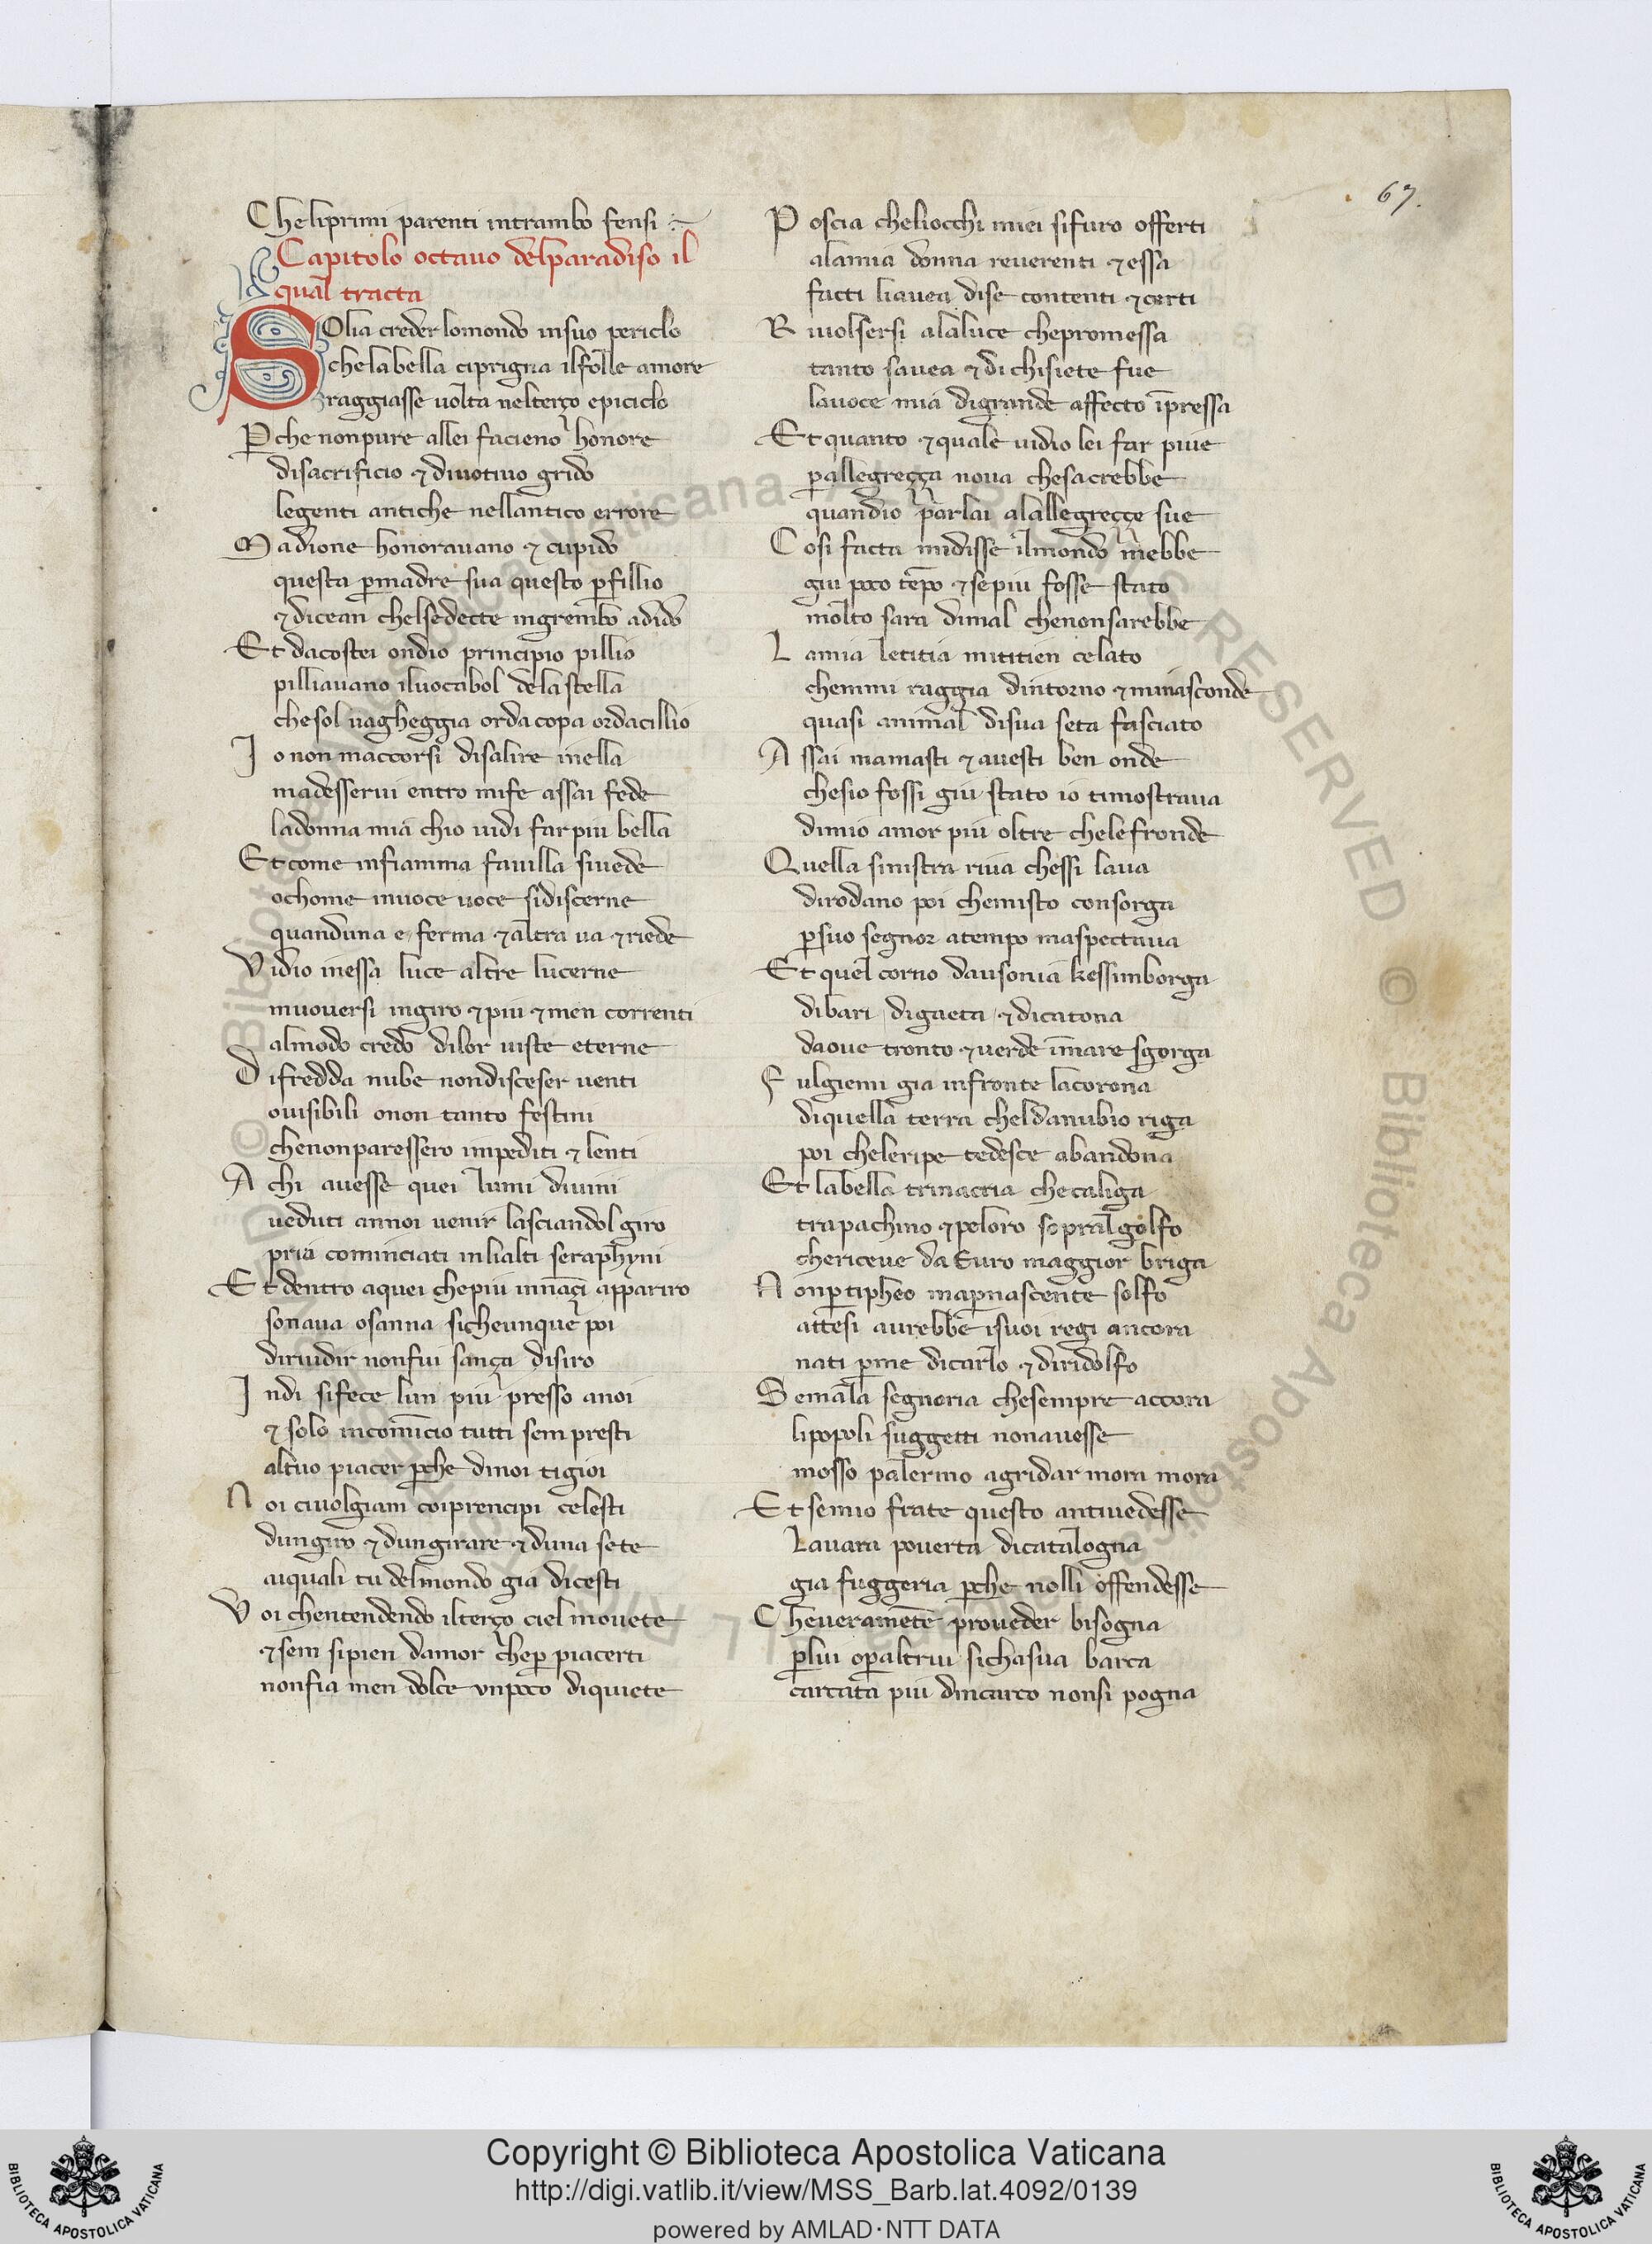 67.
Che li primi parenti intrambo fensi
Capitolo octauo del paradiso il
qual tracta
SOlia creder lo mondo in suo periclo
che la bella ciprigna il folle amore
raggiasse uolta nel terço epiciclo
P̱che non pure allei facieno honore
di sacrificio ⁊ di uotiuo grido
le genti antiche nell antico errore
Ma dione honorauano ⁊ cupido
questa ꝑ madre sua questo ꝑ fillio
⁊ dicean chel sedecte in grembo a dido
Et da costei ond io principio pillio
pilliauano il uocabol de la stella
che sol uagheggia or da copa or da cillio
Io non maccorsi di salire in ella
ma desserui entro mi fe assai fede
la donna mia chio uidi far piu bella
Et come in fiamma fauilla si uede
o chome in uoce uoce si discerne
quand una e ferma ⁊ altra ua ⁊ riede
Vidio in essa luce altre lucerne
muouersi in giro ⁊ piu ⁊ men correnti
al modo credo di lor uiste eterne
Di fredda nube non disceser uenti
o uisibili o non tanto festini
che non paressero impediti ⁊ lenti
A chi auesse quei lumi diuini
ueduti annoi uenir lasciandol giro
pria cominciati in li alti seraphyni
Et dentro a quei che piu innaçi appariro
sonaua osanna si che unque poi
di riudir non fui sança disiro
Indi si fece lun piu presso a noi
⁊ solo incomīcio tutti sem presti
al tuo piacer ꝑche di noi ti gioi
Noi ci uolgiam coi prencipi celesti
dun giro ⁊ dun girare ⁊ duna sete
ai quali tu del mondo gia dicesti
Voi chentendendo il terço ciel mouete
⁊ sem si pien damor che ꝑ piacerti
non fia men dolce vn poco di quiete
Poscia che li occhi miei si furo offerti
a la mia donna reuerenti ⁊ essa
facti li auea di se contenti ⁊ certi
Riuolsersi a la luce che promessa
tanto sauea ⁊ di chi siete fue
la uoce mia di grande affecto īpressa
Et quanto ⁊ quale uidio lei far piue
ꝑ allegreçça noua che sacrebbe
quandio parlai a lallegreçe sue
Cosi facta mi disse il mondo mebbe
giu poco tēpo ⁊ se piu fosse stato
molto sara di mal che non sarebbe
La mia letitia mi ti tien celato
che mmi raggia dintorno ⁊ mi nasconde
quasi animal di sua seta fasciato
Assai mamasti ⁊ auesti ben onde
che sio fossi giu stato io ti mostraua
di mio amor piu oltre che le fronde
Quella sinistra riua chessi laua
di rodano poi che misto con sorga
ꝑ suo segnor a tempo maspectaua
Et quel corno dausonia ke ssimborga
di bari di gaeta ⁊ di catona
da oue tronto ⁊ uerde ī mare sgorga
Fulgiemi gia in fronte la corona
di quella terra chel danubio riga
poi che le ripe tedesce abandona
Et la bella trinacria che caliga
tra pachino ⁊ peloro sopral golfo
che riceue da Euro maggior briga
Non ꝑ tipheo ma ꝑ nascente solfo
attesi aurebbe i suoi regi ancora
nati ꝑ me di carlo ⁊ di ridolfo
Se mala segnoria che sempre accora
li popoli suggetti non auesse
mosso palermo a gridar mora mora
Et se mio frate questo antiuedesse
Lauara pouerta di catalogna
gia fuggeria ꝑche nolli offendesse
Che ueramēte proueder bisogna
ꝑ lui o ꝑ altrui si cha sua barca
carcata piu dincarco non si pogna
Copyright © Biblioteca Apostolica Vaticana
http://digi.vatlib.it/view/MSS_Barb.lat.4092/0139
powered by AMLAD·NTT DATA
BIBLIOTECA APOSTOLICA VATICANA
BIBLIOTECA APOSTOLICA VATICANA